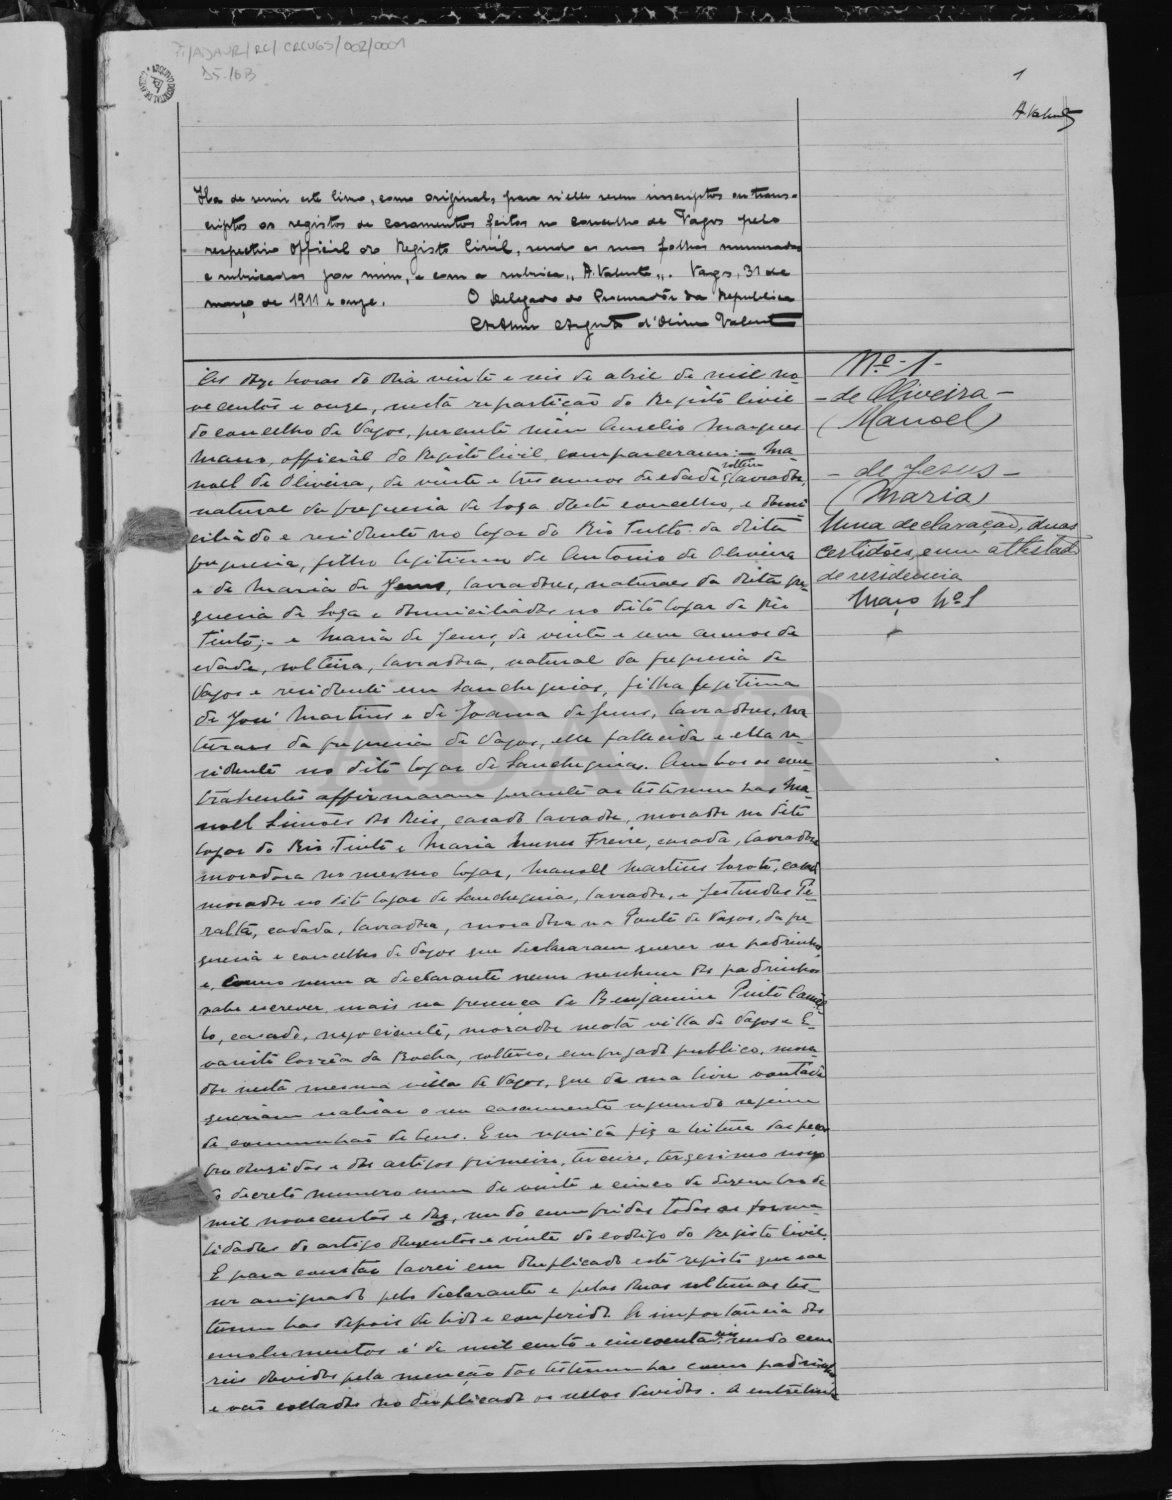 PT/ADAVR/RC/CRCVGS/002/0001
D5./6B
1
A Valente
Ha de servir este livro, como original, para n'elle serem inscriptos ou trans-
criptos os registos de casamentos feitos no concelho de Vagos pelo
respectivo Official do Registo Civil, sendo as suas folhas numeradas
e rubricadas por mim, e com a rubrica "A. Valente". Vagos, 31 de
março de 1911 e onze. O Delegado do Procurador da Republica
Arthur Augusto d'Oliveira Valente
Ás onze horas do dia vinte e seis de abril de mil no-
vecentos e onze, nesta repartição do Registo Civil
do concelho de Vagos, perante mim Aurelio Marques
Mano, official do Registo Civil, compareceram: - Ma-
noel de Oliveira, de vinte e tres annos de edade, solteiro, lavrador,
natural da freguesia de Soza deste concelho, e domi-
ciliado e residente no logar do Rio Tinto da dita
freguesia, filho legitimo de Antonio de Oliveira
e de Maria de Jesus, lavradores, naturaes da dita fre-
guesia de Soza e domiciliados no dito logar de Rio
Tinto; - e Maria de Jesus, de vinte e um annos de
edade, solteira, lavradora, natural da freguesia de
Vagos e residente em Sanchequias, filha legitima
de José Martins e de Joanna de Jesus, lavradores, na-
turaes da freguesia de Vagos, elle fallecido e ella re-
sidente no dito logar de Sanchequias. Ambos os con-
trahentes affirmaram perante as testemunhas Ma-
noel Simões dos Reis, casado lavrador, morador no dito
logar do Rio Tinto e Maria Nunes Freire, casada, lavradora
moradora no mesmo logar, Manoel Martins, casado,
morador no dito logar de Sanchequias, lavrador, e Gertrudes Pe-
ralta, casada, lavradora, moradora na Ponte de Vagos, da fre-
guesia e concelho de Vagos que declararam querer ser padrinhos,
e, como nem a declarante nem nenhum dos padrinhos
sabe escrever, mais na presença de Benjamim Pinto Camel-
lo, casado, negociante, morador nesta villa de Vagos e E-
varisto Corrêa da Rocha, solteiro, empregado publico, mora-
dor nesta mesma villa de Vagos, que de sua livre vontade
queriam realisar o seu casamento segundo regimen
de communhão de bens. Em seguida fiz a leitura das peças
produzidas e dos artigos primeiro, terceiro, trigesimo nono
do decreto numero um de vinte e cinco de dezembro de
mil novecentos e dez, sendo cumpridas todas as forma-
lidades do artigo duzentos e vinte do codigo do Registo Civil.
E para constar lavrei em duplicado este registo que vae
ser assignado pelo declarante e pelas duas ultimas tes-
temunhas depois de lido e conferido. A importancia dos
emolumentos é de mil cento e cincoenta reis, sendo cem
reis devidos pela menção das testemunhas como padrinhos
e vão collados no duplicado os sellos devidos. A entrelinha
Nº - 1 -
- de Oliveira -
(Manoel)
- de Jesus -
(Maria)
Uma declaração, duas
certidões, e um attestado
de residencia
Maço Nº 1